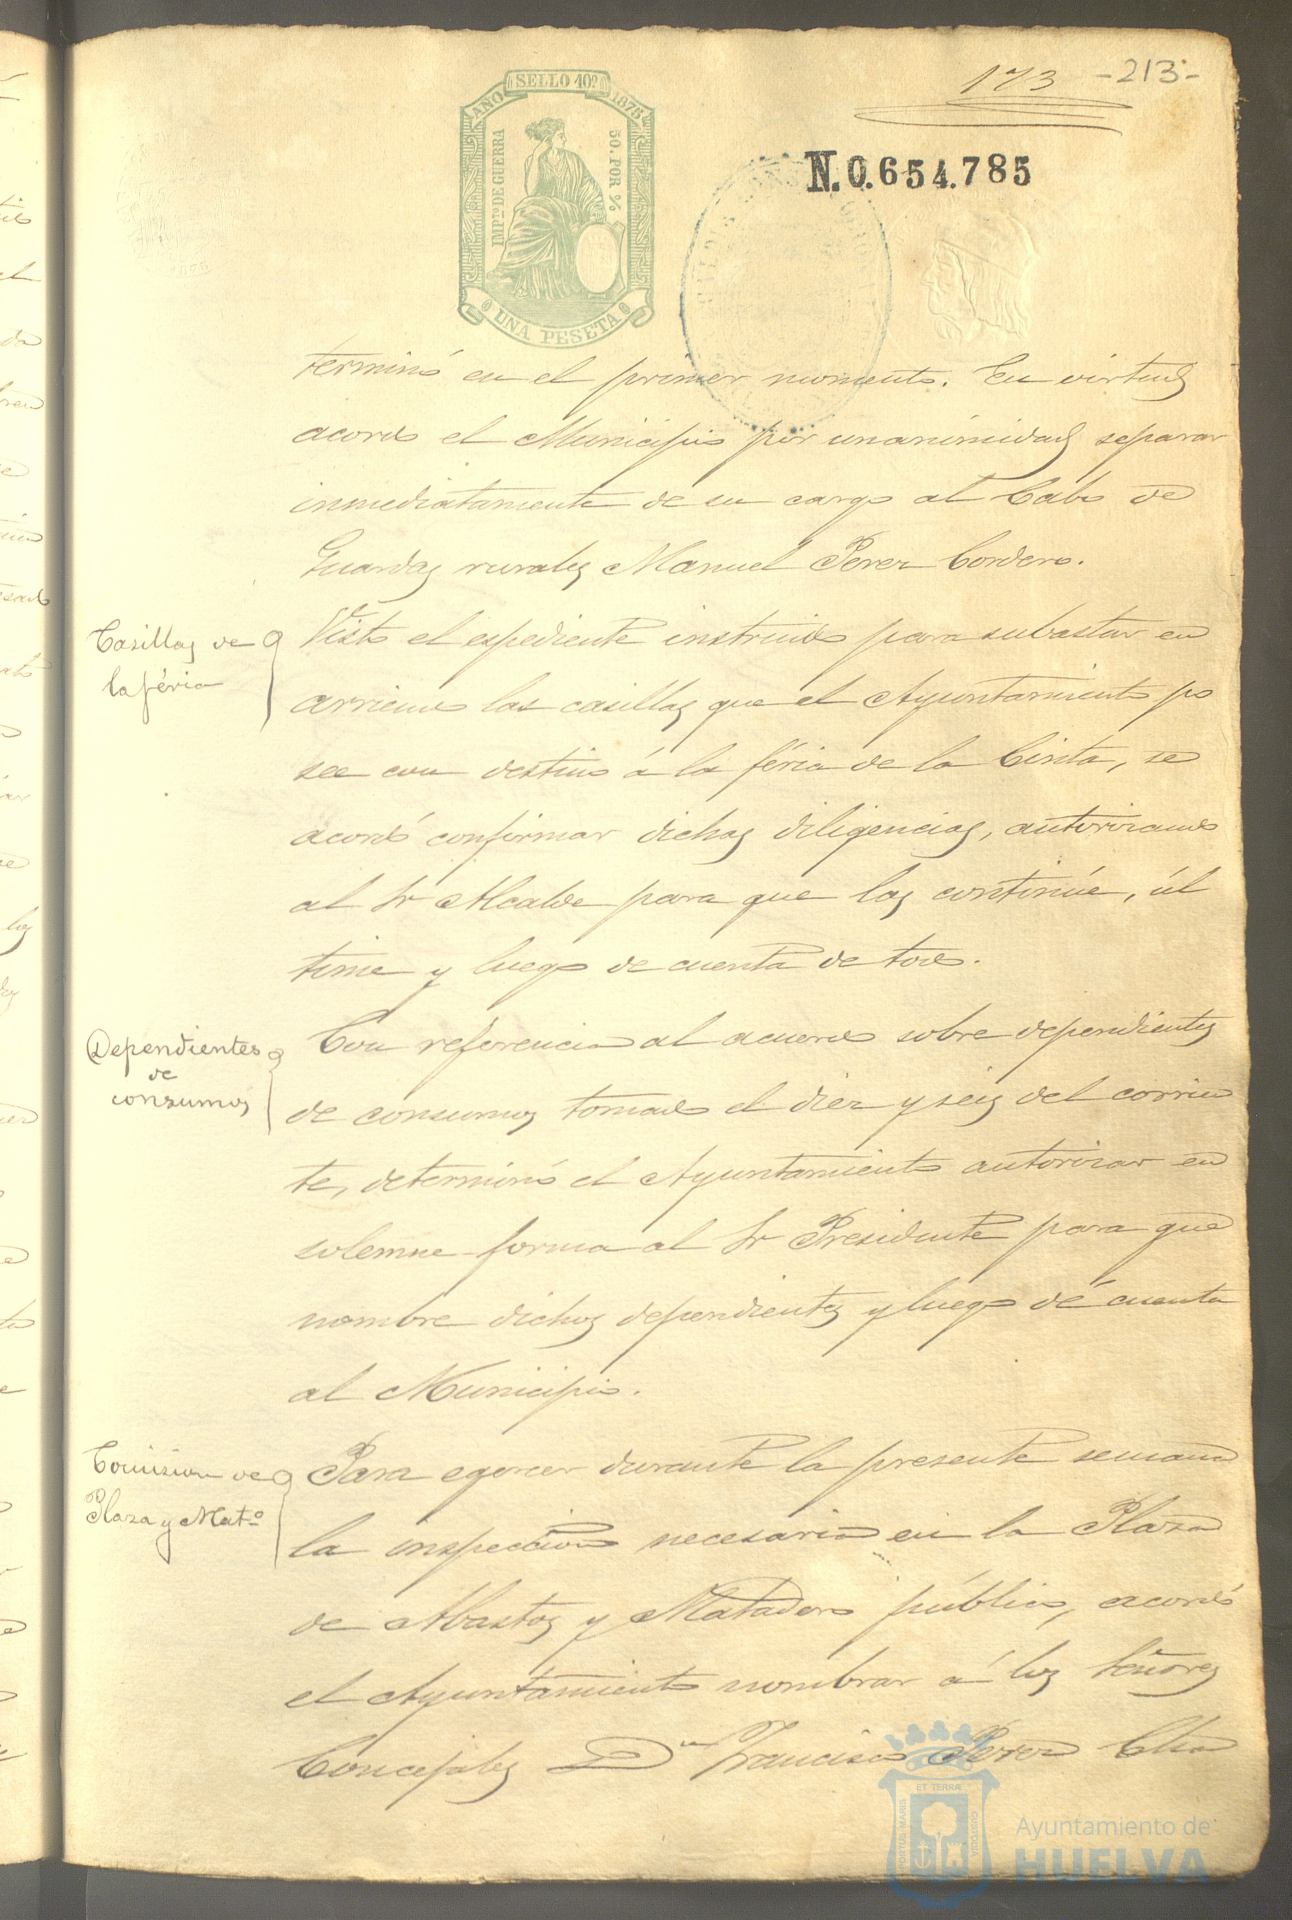 173 -213-
AÑO SELLO 10º 1878
IMPTO DE GUERRA
50. POR %
UNA PESETA
N. 0.654.785
terminó en el primer momento. En virtud
acordó el Municipio por unanimidad separar
inmediatamente de su cargo al Cabo de
Guardas rurales Manuel Perez Cordero.
Casillas de
la féria
Visto el espediente instruido para subastar en
arriendo las casillas que el Ayuntamiento po
see con destino á la féria de la Cinta, se
acordó confirmar dichas diligencias, autorizando
al Sr Alcalde para que las continúe, úl
time y luego de cuenta de todo.
Dependientes
de
consumos
Con referencia al acuerdo sobre dependientes
de consumos tomado el diez y seis del corrien
te, determinó el Ayuntamiento autorizar en
solemne forma al Sr Presidente para que
nombre dichos dependientes y luego dé cuenta
al Municipio.
Comision de
Plaza y Matº
Para egercer durante la presente semana
la inspeccion necesaria en la Plaza
de Abastos y Matadero público, acordó
el Ayuntamiento nombrar á los Señores
Concejales Dn Francisco Perez
PORTUS MARIS ET TERRAE CUSTODIA
Ayuntamiento de
HUELVA